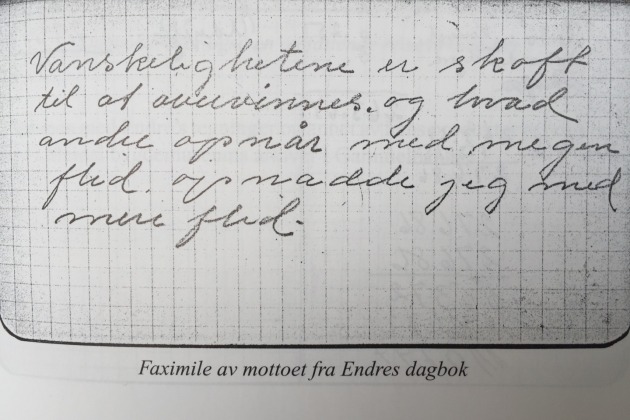 Vanskelighetene er skaft
til at overvinnes. og hvad
andre opnår med megen
flid. opnadde jeg med
mere flid.
Faximile av mottoet fra Endres dagbok